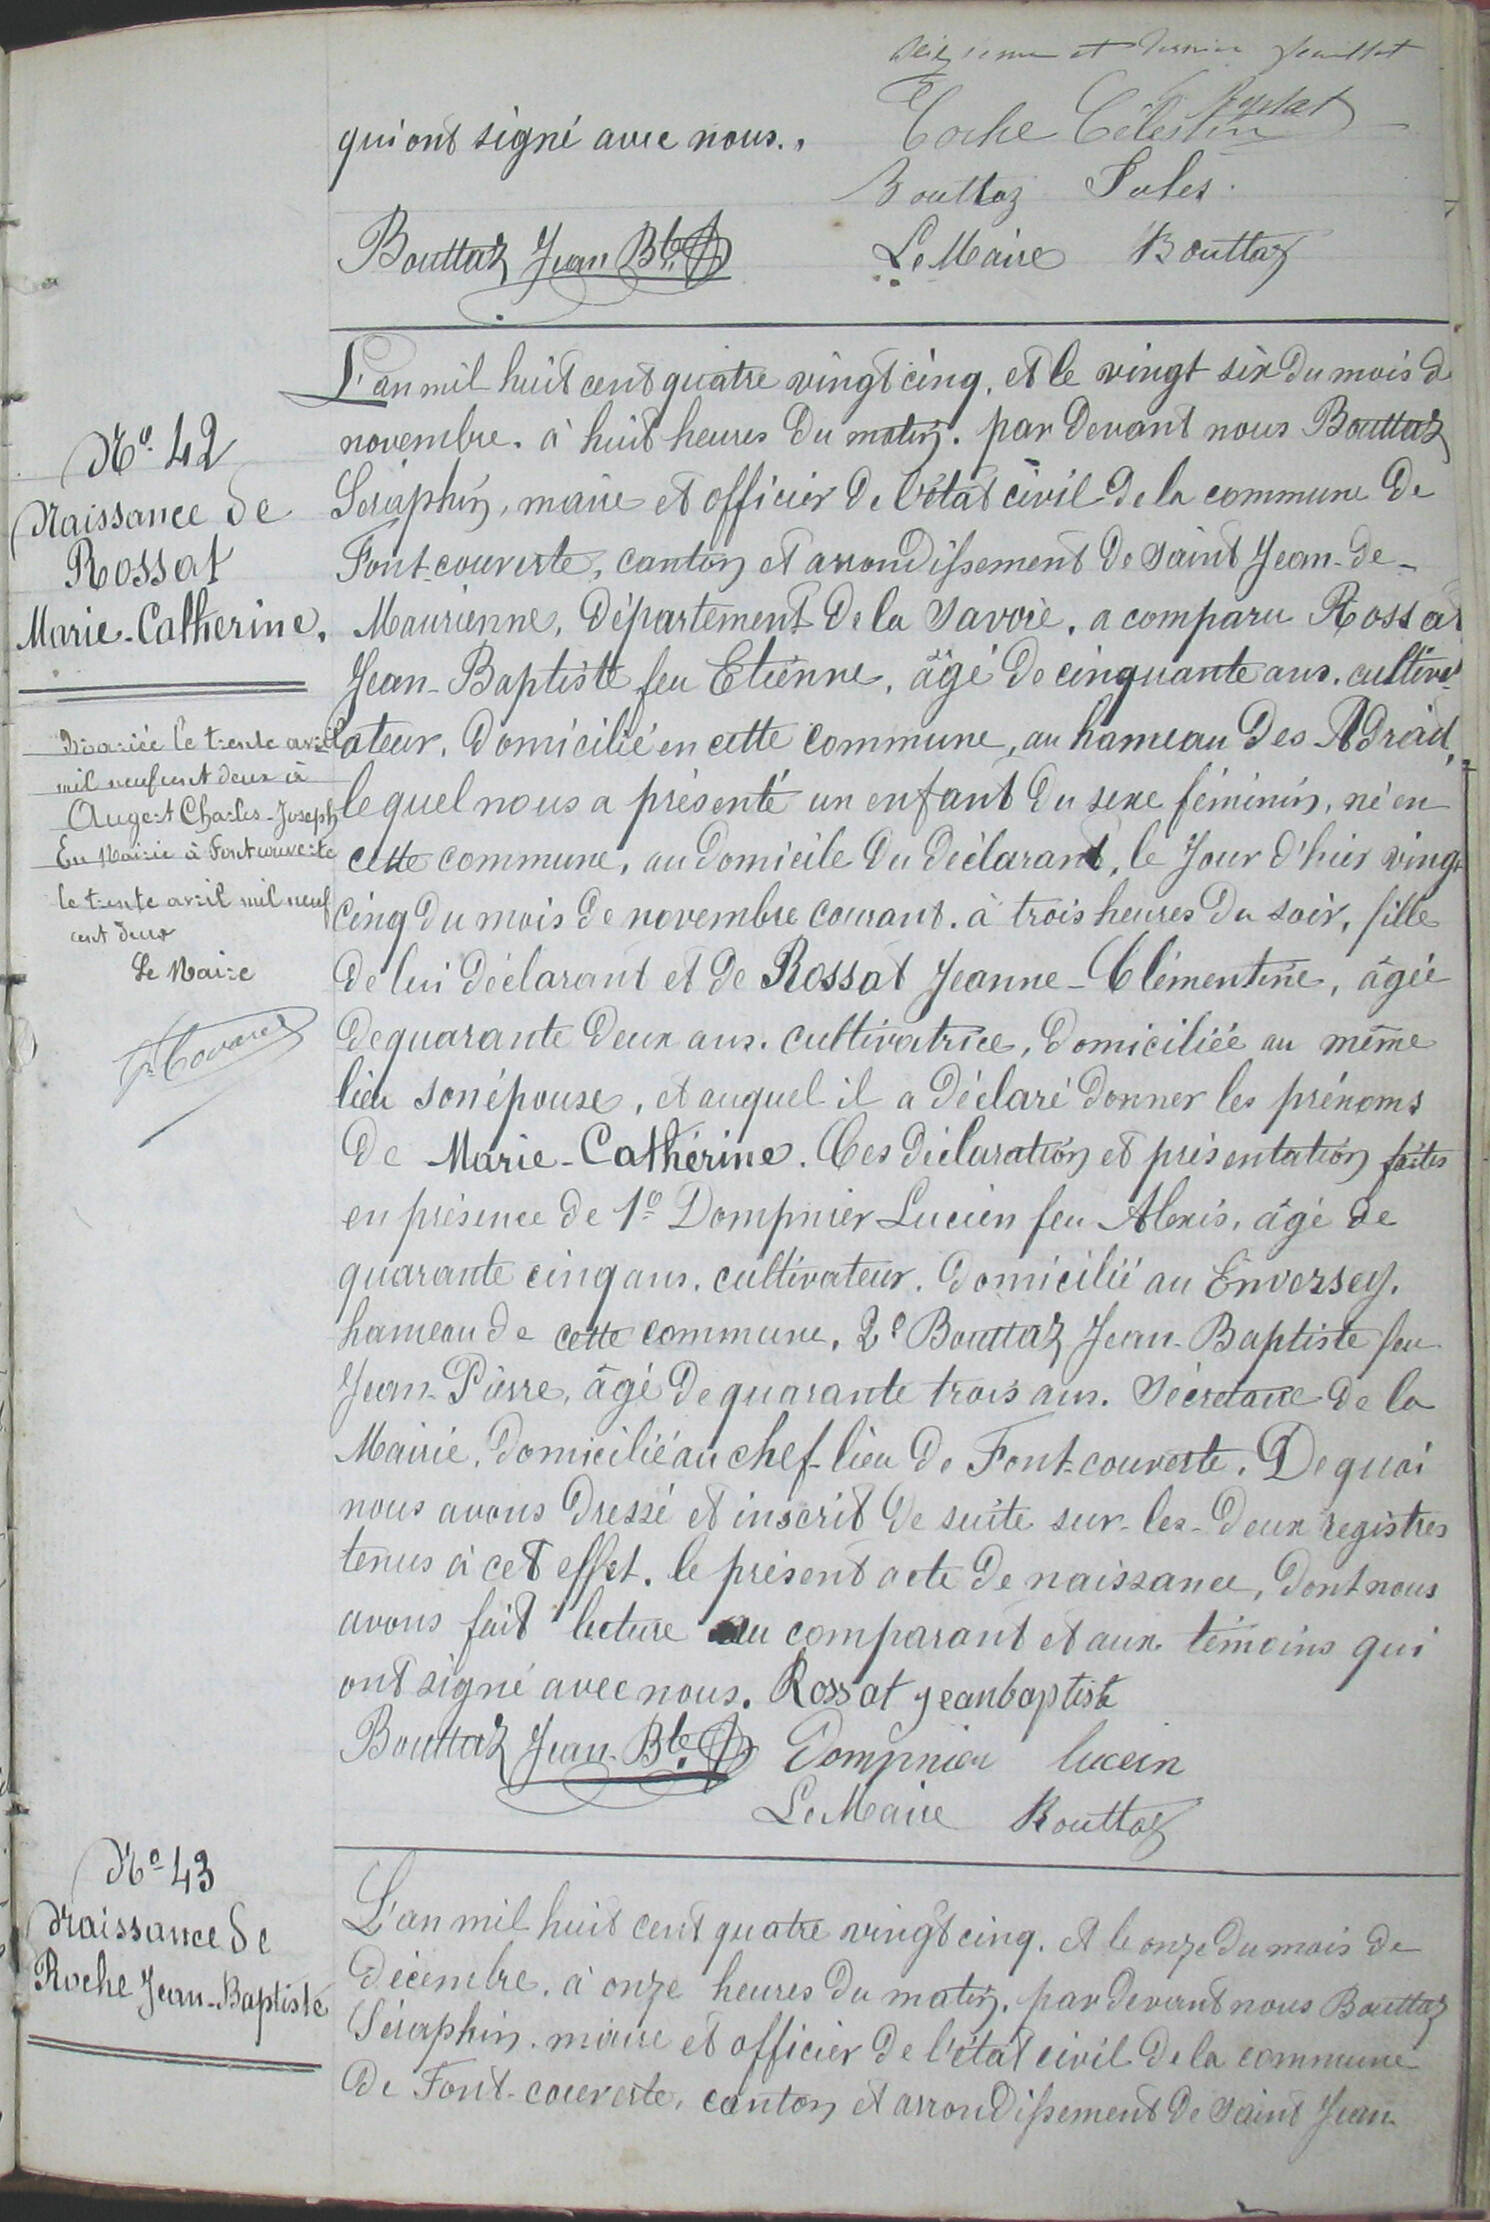 et dernier feuillet
qui ont signé avec nous. Célestin
Bouttaz Jules.
Bouttaz Jean Bte Le Maire Bouttaz
L'an mil huit cent quatre vingt cinq, et le vingt six du mois de
novembre. à huit heures du matin. par devant nous Bouttaz
Séraphin, maire et officier de l'état civil de la commune de
Font-couverte, canton et arrondissement de Saint Jean-de-
Maurienne, département de la Savoie, a comparu Rossat
Jean-Baptiste feu Etienne, âgé de cinquante ans, cultiv-
ateur, domicilié en cette commune, au hameau des Adrait,
lequel nous a présenté un enfant du sexe féminin, né en
cette commune, au domicile du déclarant, le jour d'hier vingt
cinq du mois de novembre courant. à trois heures du soir, fille
de lui déclarant et de Rossat Jeanne-Clémentine, âgée
de quarante deux ans. cultivatrice, domiciliée au même
lieu son épouse, et auquel il a déclaré donner les prénoms
de Marie-Cathérine. Ces déclaration et présentation faites
en présence de 1º Dompnier Lucien feu Alexis, âgé de
quarante cinq ans. cultivateur. domicilié au Enversey.
hameau de cette commune, 2º Bouttaz Jean-Baptiste feu
Jean-Pierre, âgé de quarante trois ans. Sécretaire de la
Mairie, domicilié au chef-lieu de Font-couverte. De quoi
nous avons dressé et inscrit de suite sur-les-deux registres
tenus à cet effet. le présent acte de naissance, dont nous
avons fait lecture au comparant et aux témoins qui
ont signé avec nous. Rossat jeanbaptiste
Bouttaz Jean-Bte Dompnier lucein
Le Maire Bouttaz
Nº 42
Naissance de
Rossat
Marie-Catherine,
Mariée le trente avril
mil neufcent deux à
Augert Charles-Joseph
En Mairie à Fontcouverte
le trente avril mil neuf
cent deux
Le Maire
Nº 43
Naissance de
Roche Jean-Baptiste
L'an mil huit cent quatre vingt cinq. et le onze du mois de
décembre. à onze heures du matin. par devant nous Bouttaz
Séraphin. maire et officier de l'état civil de la commune
de Font-couverte, canton et arrondissement de Saint Jean